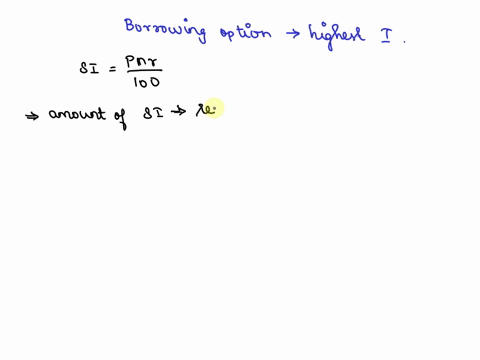 Borrowing option → highest I.
SI = Pnr/100
⇒ amount of SI →